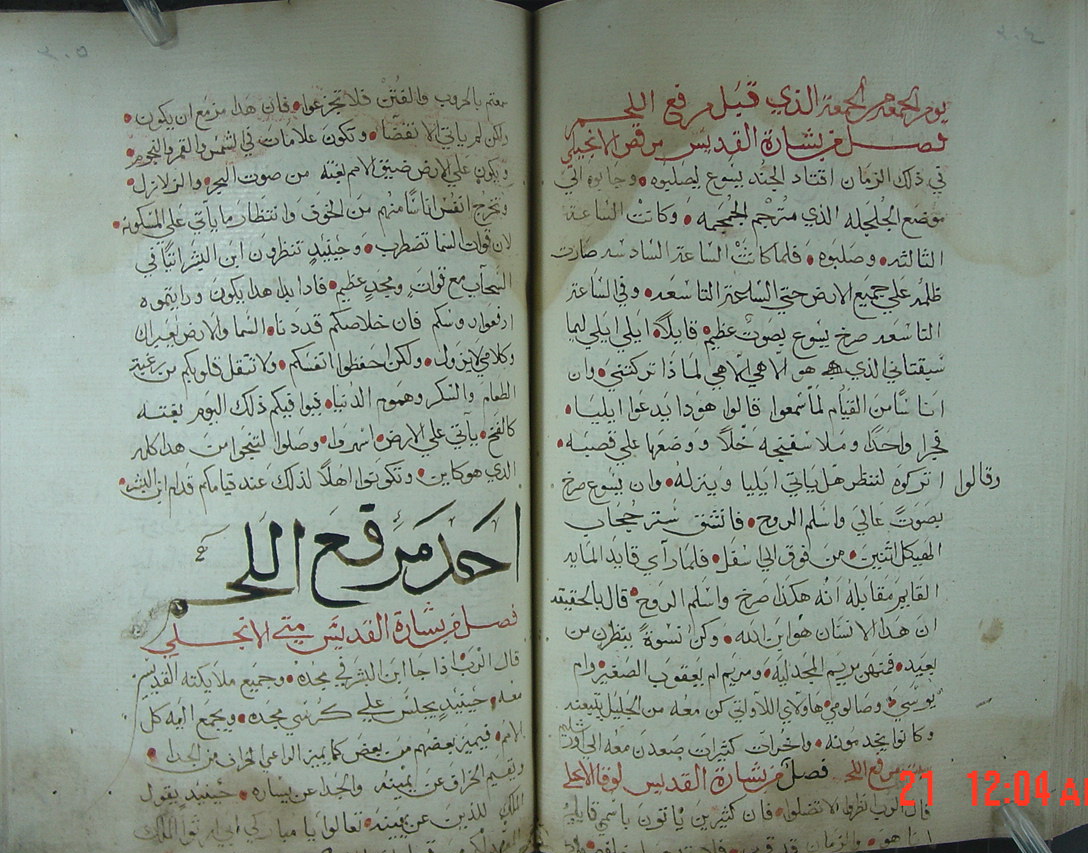 يوم الجمعة من الجمعة الذي قبل مرفع اللحم
فصل من بشارة القديس مرقص الانجيلي
في ذلك الزمان اقتاد الجند يسوع ليصلبوه وجابوه الي
موضع الجلجله الذي مترجم الجمجمه وكانت الساعة
التالته وصلبوه فلما كانت الساعة السادسه صارت
ظلمه علي جميع الارض حتي الساعة التاسعه وفي الساعة
التاسعه صرخ يسوع بصوت عظيم قايلا ايلي ايلي ليما
سبقتاني الذي هو الاهي الاهي لماذا تركتني وان
اناسًا من القيام لما سمعوا قالوا هودا يدعوا ايليا
فجرا واحدًا وملا سفنجه خلًا ووضعها علي قصبه
وقالوا اتركوه لننظر هل ياتي ايليا وينزله وان يسوع صرخ
بصوت عالي واسلم الروح فانشق ستر حجاب
الهيكل اتنين من فوق الي اسفل فلما راي قايد المايه
القايم مقابله انه هكذا صرخ واسلم الروح قال بالحقيقه
ان هذا الانسان هو ابن الله وكن نسوة ينظرن من
بعيد فمنهن مريم المجدليه ومريم ام يعقوب الصغير وام
يوسي وصالومي هاولاي اللاواتي كن معه من الجليل يتبعنه
وكانوا يخدمونه واخرات كثيرات صعدن معه الي اورشليم
مرفع اللحم فصل من بشارة القديس لوقا الانجلي
قال الرب انظروا لا تضلوا فان كثيرين ياتون باسمي قايلين
انا هو والزمان قد قرب فلا
سمعتم بالحروب والفتن فلا تجزعوا فان هدا مزمع ان يكون
ولكن لم ياتي الانقضا وتكون علامات في الشمس والقمر والنجوم
ويكون علي الارض ضيق الامم بغته من صوت البحر والزلازل
وتخرج انفس اناسًا منهم من الخوف وانتظار ما ياتي علي المسكونه
لان قوات السما تضطرب وحينيد تنظرون ابن البشر اتيًا في
السحاب مع قوات ومجد عظيم فادا بدا هدا يكون ورايتموه
ارفعوا روسكم فان خلاصكم قد دنا السما والارض تعبران
وكلامي لا يزول ولكن احفظوا انفسكم ولا تتقل قلوبكم من رغبة
الطعام والسكر وهموم الدنيا فيوافيكم ذلك اليوم بغته
كالفخ ياتي علي الارض اسهروا وصلوا لتنجوا من هدا كله
الدي هو كاين وتكونوا اهلًا لذلك عند قيامكم قدام ابن البشر
احد مرفع اللحم
فصل من بشارة القديس متي الانجلي
قال الرب اذا جا ابن البشر في مجده وجميع ملايكته القديسين
معه حينيد يجلس علي كرسي مجده ويجمع اليه كل
الامم فيميز بعضهم من بعض كما يميز الراعي الخراف من الجدا
وتقيم الخراف عن يمينه والجدا عن يساره حينيد يقول
الملك للدين عن يمينه تعالوا يا مباركي ابي الملك
21 12:04 A